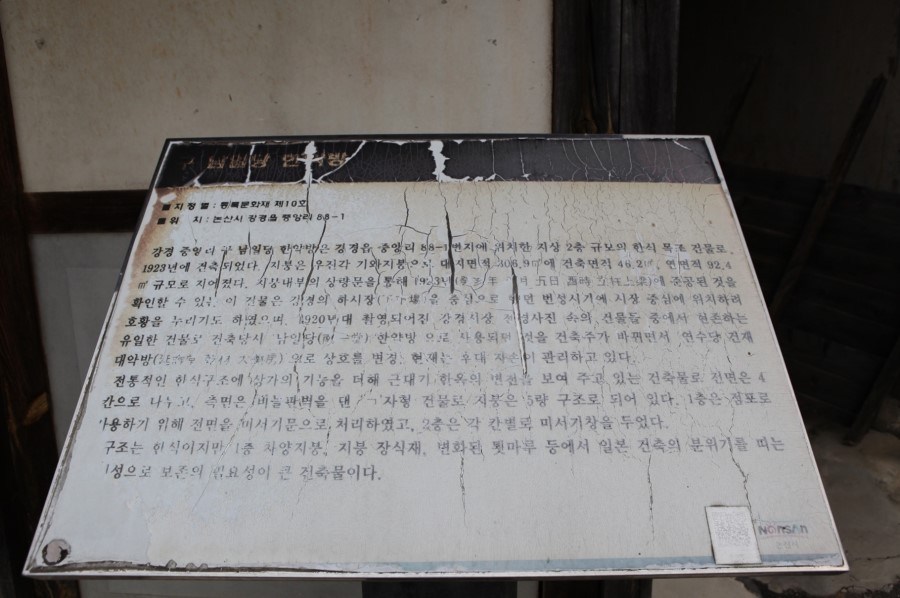 한약방
지 정 별 : 등록문화재 제10호
위 치 : 논산시 강경읍 중앙리 88-1
강경 중앙리 구 남일당 한약방은 강경읍 중앙리 88-1번지에 위치한 지상 2층 규모의 한식 목조 건물로,
1923년에 건축되었다. 지붕은 우진각 기와지붕으로 대지면적 406.9㎡에 건축면적 46.2㎡, 연면적 92.4
㎡ 규모로 지어졌다. 지붕내부의 상량문을 통해 1923년 에 준공된 것을
확인할 수 있는 이 건물은 강경의 하시장 을 중심으로 번성시기에 시장 중심에 위치하려
호황을 누리기도 하였으며, 1920년대 촬영되어진 강경시장 전경사진 속의 건물들 중에서 현존하는
유일한 건물로 건축당시 남일당 한약방 으로 사용되던 것을 건축주가 바뀌면서 연수당 건재
대약방 으로 상호를 변경, 현재는 후대 자손이 관리하고 있다.
전통적인 한식구조에 상가의 기능을 더해 근대기 한옥의 변천을 보여 주고 있는 건축물로 전면은 4
칸으로 나누고, 측면은 비늘판벽을 댄 ㄱ자형 건물로 지붕은 5량 구조로 되어 있다. 1층은 점포로
사용하기 위해 전면을 미서기문으로 처리하였고, 2층은 각 칸별로 미서기창을 두었다.
구조는 한식이지만 1층 차양지붕, 지붕 장식재, 변화된 툇마루 등에서 일본 건축의 분위기를 띠는
성으로 보존의 필요성이 큰 건축물이다.
NONSAN